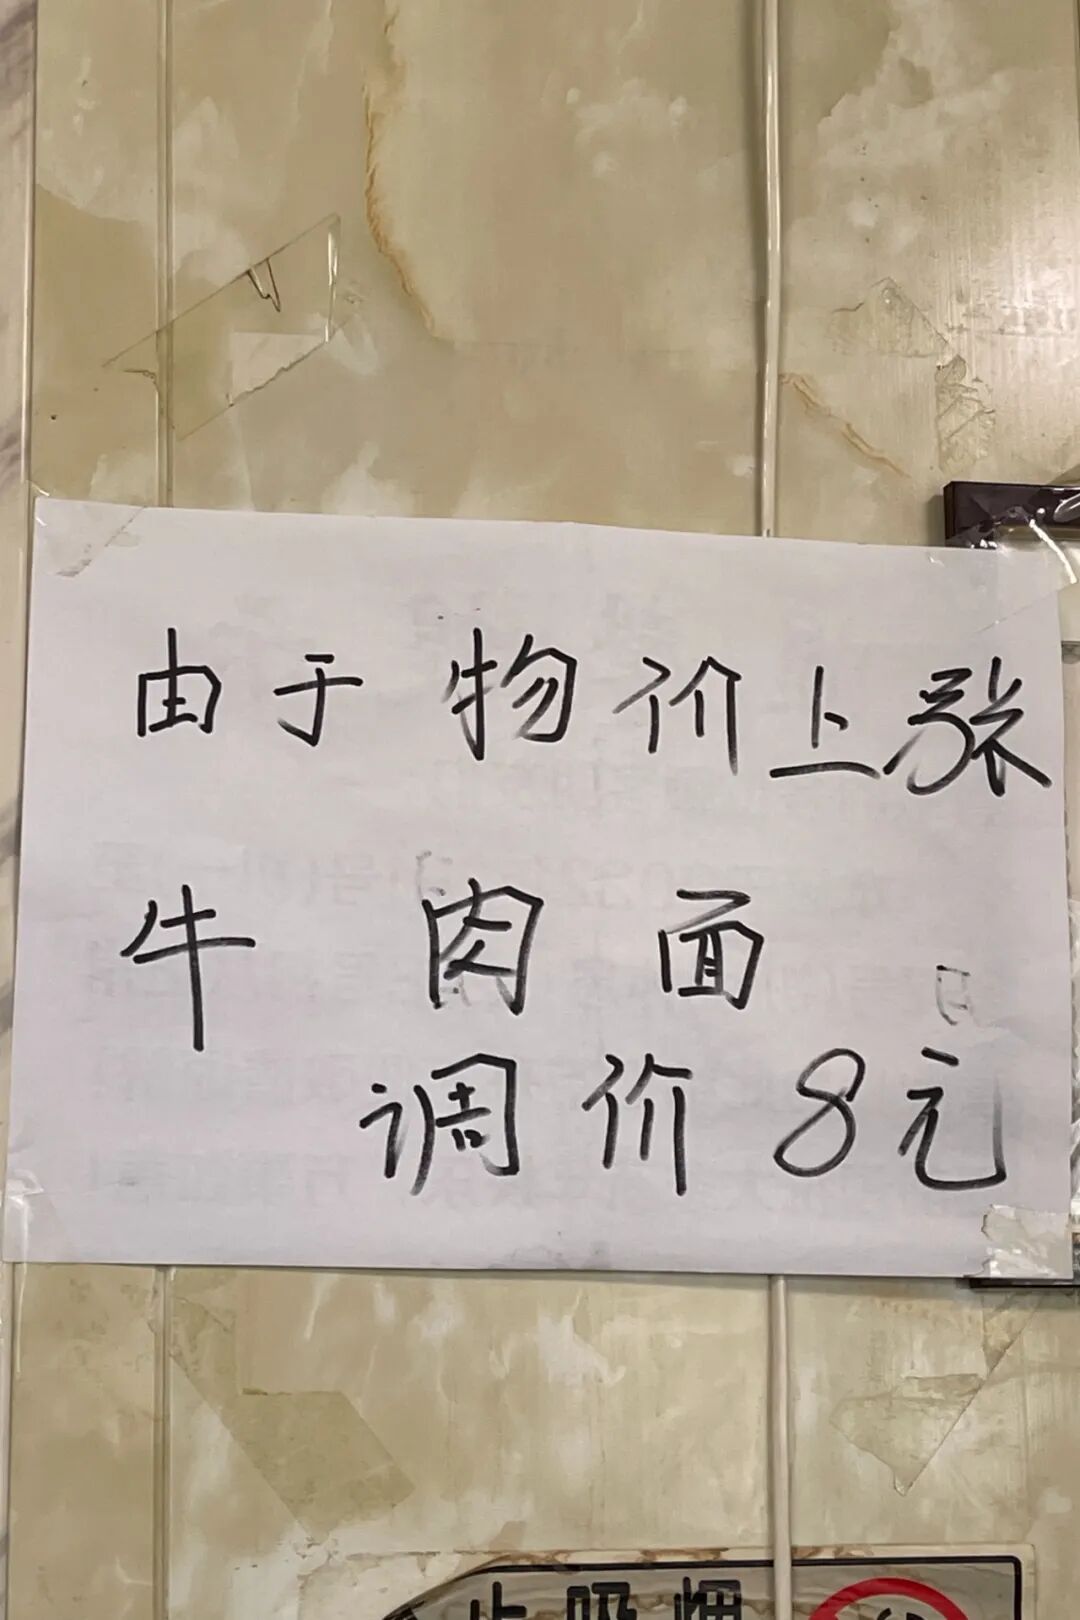 由于物价上张
牛肉面
调价8元
止吸烟